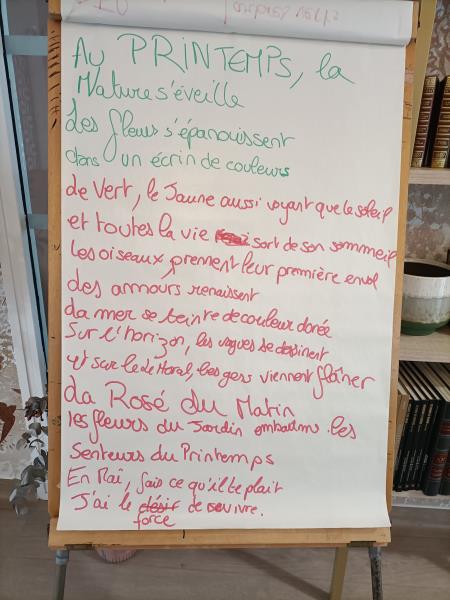 Au PRINTEMPS, la
Nature s'éveille
Les fleurs s'épanouissent
dans un écrin de couleurs
de Vert, le Jaune aussi voyant que le soleil
et toutes la vie sort de son sommeil
Les oiseaux, prennent leur première envol
des amours renaissent
La mer se teinte de couleur dorée
Sur l'horizon, les vagues se dessinent
et sur le Littoral, les gens viennent flâner
La Rosé du Matin
les fleurs du Jardin embaume les
Senteurs du Printemps
En Mai, fais ce qu'il te plait
J'ai le désir de vivre.
force